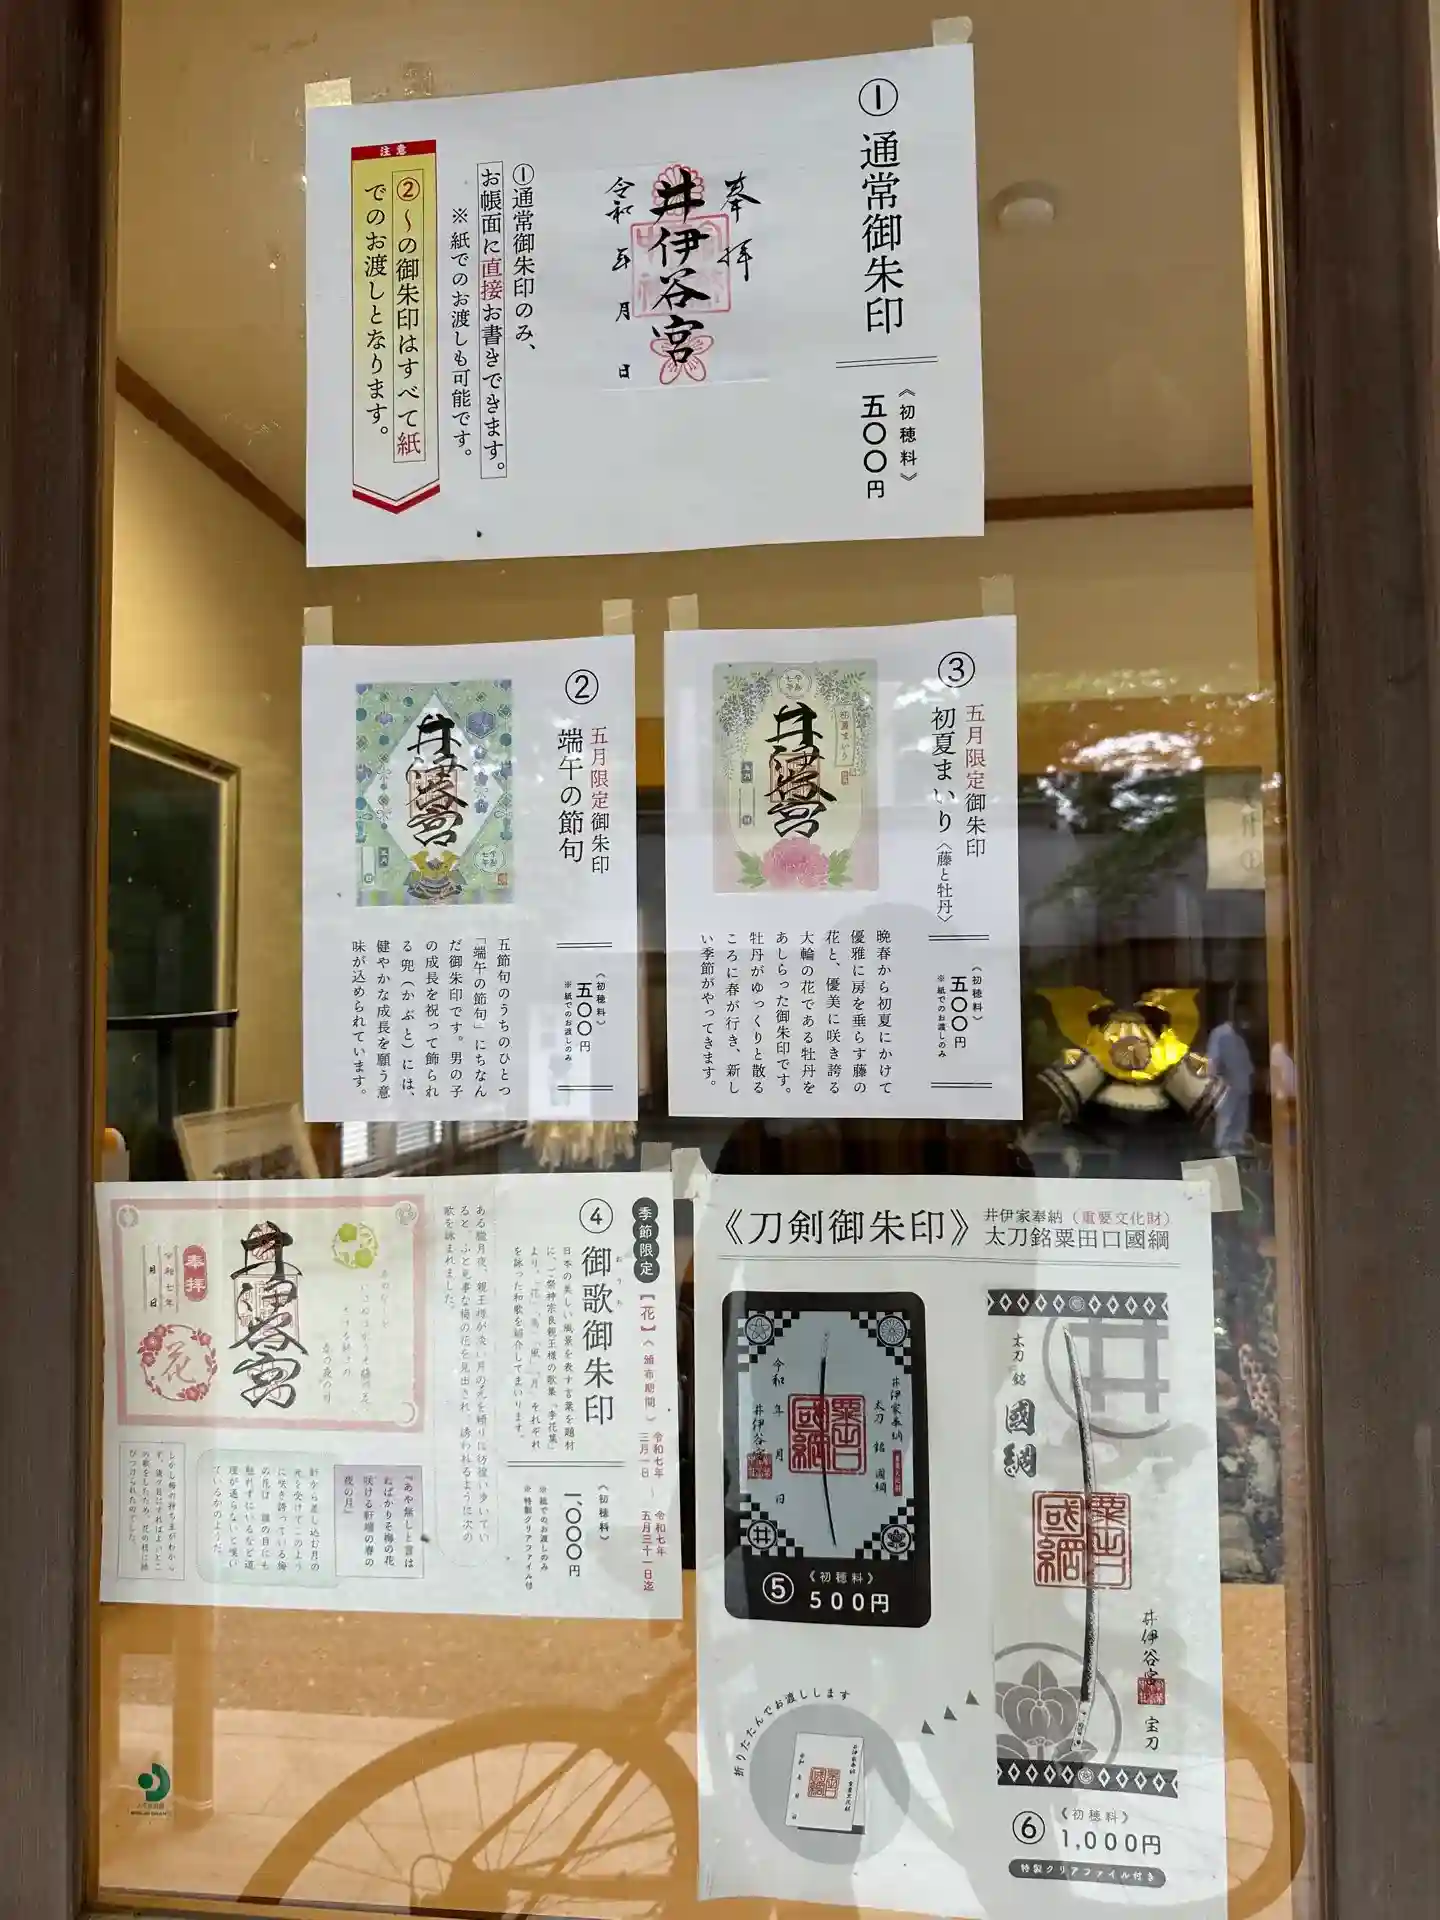 ① 通常御朱印
《初穂料》
五〇〇円
奉拝
井伊谷宮
令和 年 月 日
①通常御朱印のみ、
お帳面に直接お書きできます。
※紙でのお渡しも可能です。
注意
②〜の御朱印はすべて紙
でのお渡しとなります。
②
五月限定御朱印
端午の節句
《初穂料》
五〇〇円
※紙でのお渡しのみ
井伊谷宮
令和七年
五月
日
五節句のうちのひとつ
「端午の節句」にちなん
だ御朱印です。男の子
の成長を祝って飾られ
る兜(かぶと)には、
健やかな成長を願う意
味が込められています。
③
五月限定御朱印
初夏まいり〈藤と牡丹〉
《初穂料》
五〇〇円
※紙でのお渡しのみ
令和七年
初夏まいり
井伊谷宮
五月
日
晩春から初夏にかけて
優雅に房を垂らす藤の
花と、優美に咲き誇る
大輪の花である牡丹を
あしらった御朱印です。
牡丹がゆっくりと散る
ころに春が行き、新し
い季節がやってきます。
季節限定
【花】《頒布期間》 令和七年三月一日 ― 令和七年五月三十一日迄
④ 御歌御朱印
おうた
《初穂料》
一、〇〇〇円
※紙でのお渡しのみ
※特製クリアファイル付
日本の美しい風景を表す言葉を題材
に、ご祭神宗良親王様の歌集「李花集」
より、「花」「鳥」「風」「月」それぞれ
を詠った和歌を紹介してまいります。
ある朧月夜、親王様が淡い月の光を頼りに彷徨い歩いてい
ると、ふと見事な梅の花を見出され、誘われるように次の
歌を詠まれました。
井伊谷宮
奉拝
令和七年
月 日
花
『あや無しと言は
ねばかりそ梅の花
咲ける軒端の春の
夜の月』
軒から差し込む月の
光を受けてこのよう
に咲き誇っている梅
の花は、誰の目にも
触れずにいるなど道
理が通らないと嘆い
ているかのようだ。
《刀剣御朱印》
井伊家奉納(重要文化財)
太刀銘粟田口國綱
井伊家奉納
太刀 銘 國綱
重要文化財
粟田口
國綱
令和 年 月 日
井伊谷宮
⑤
《初穂料》
500円
太刀 銘
國綱
粟田口
國綱
井伊谷宮 宝刀
⑥
《初穂料》
1,000円
特製クリアファイル付き
折りたたんでお渡しします